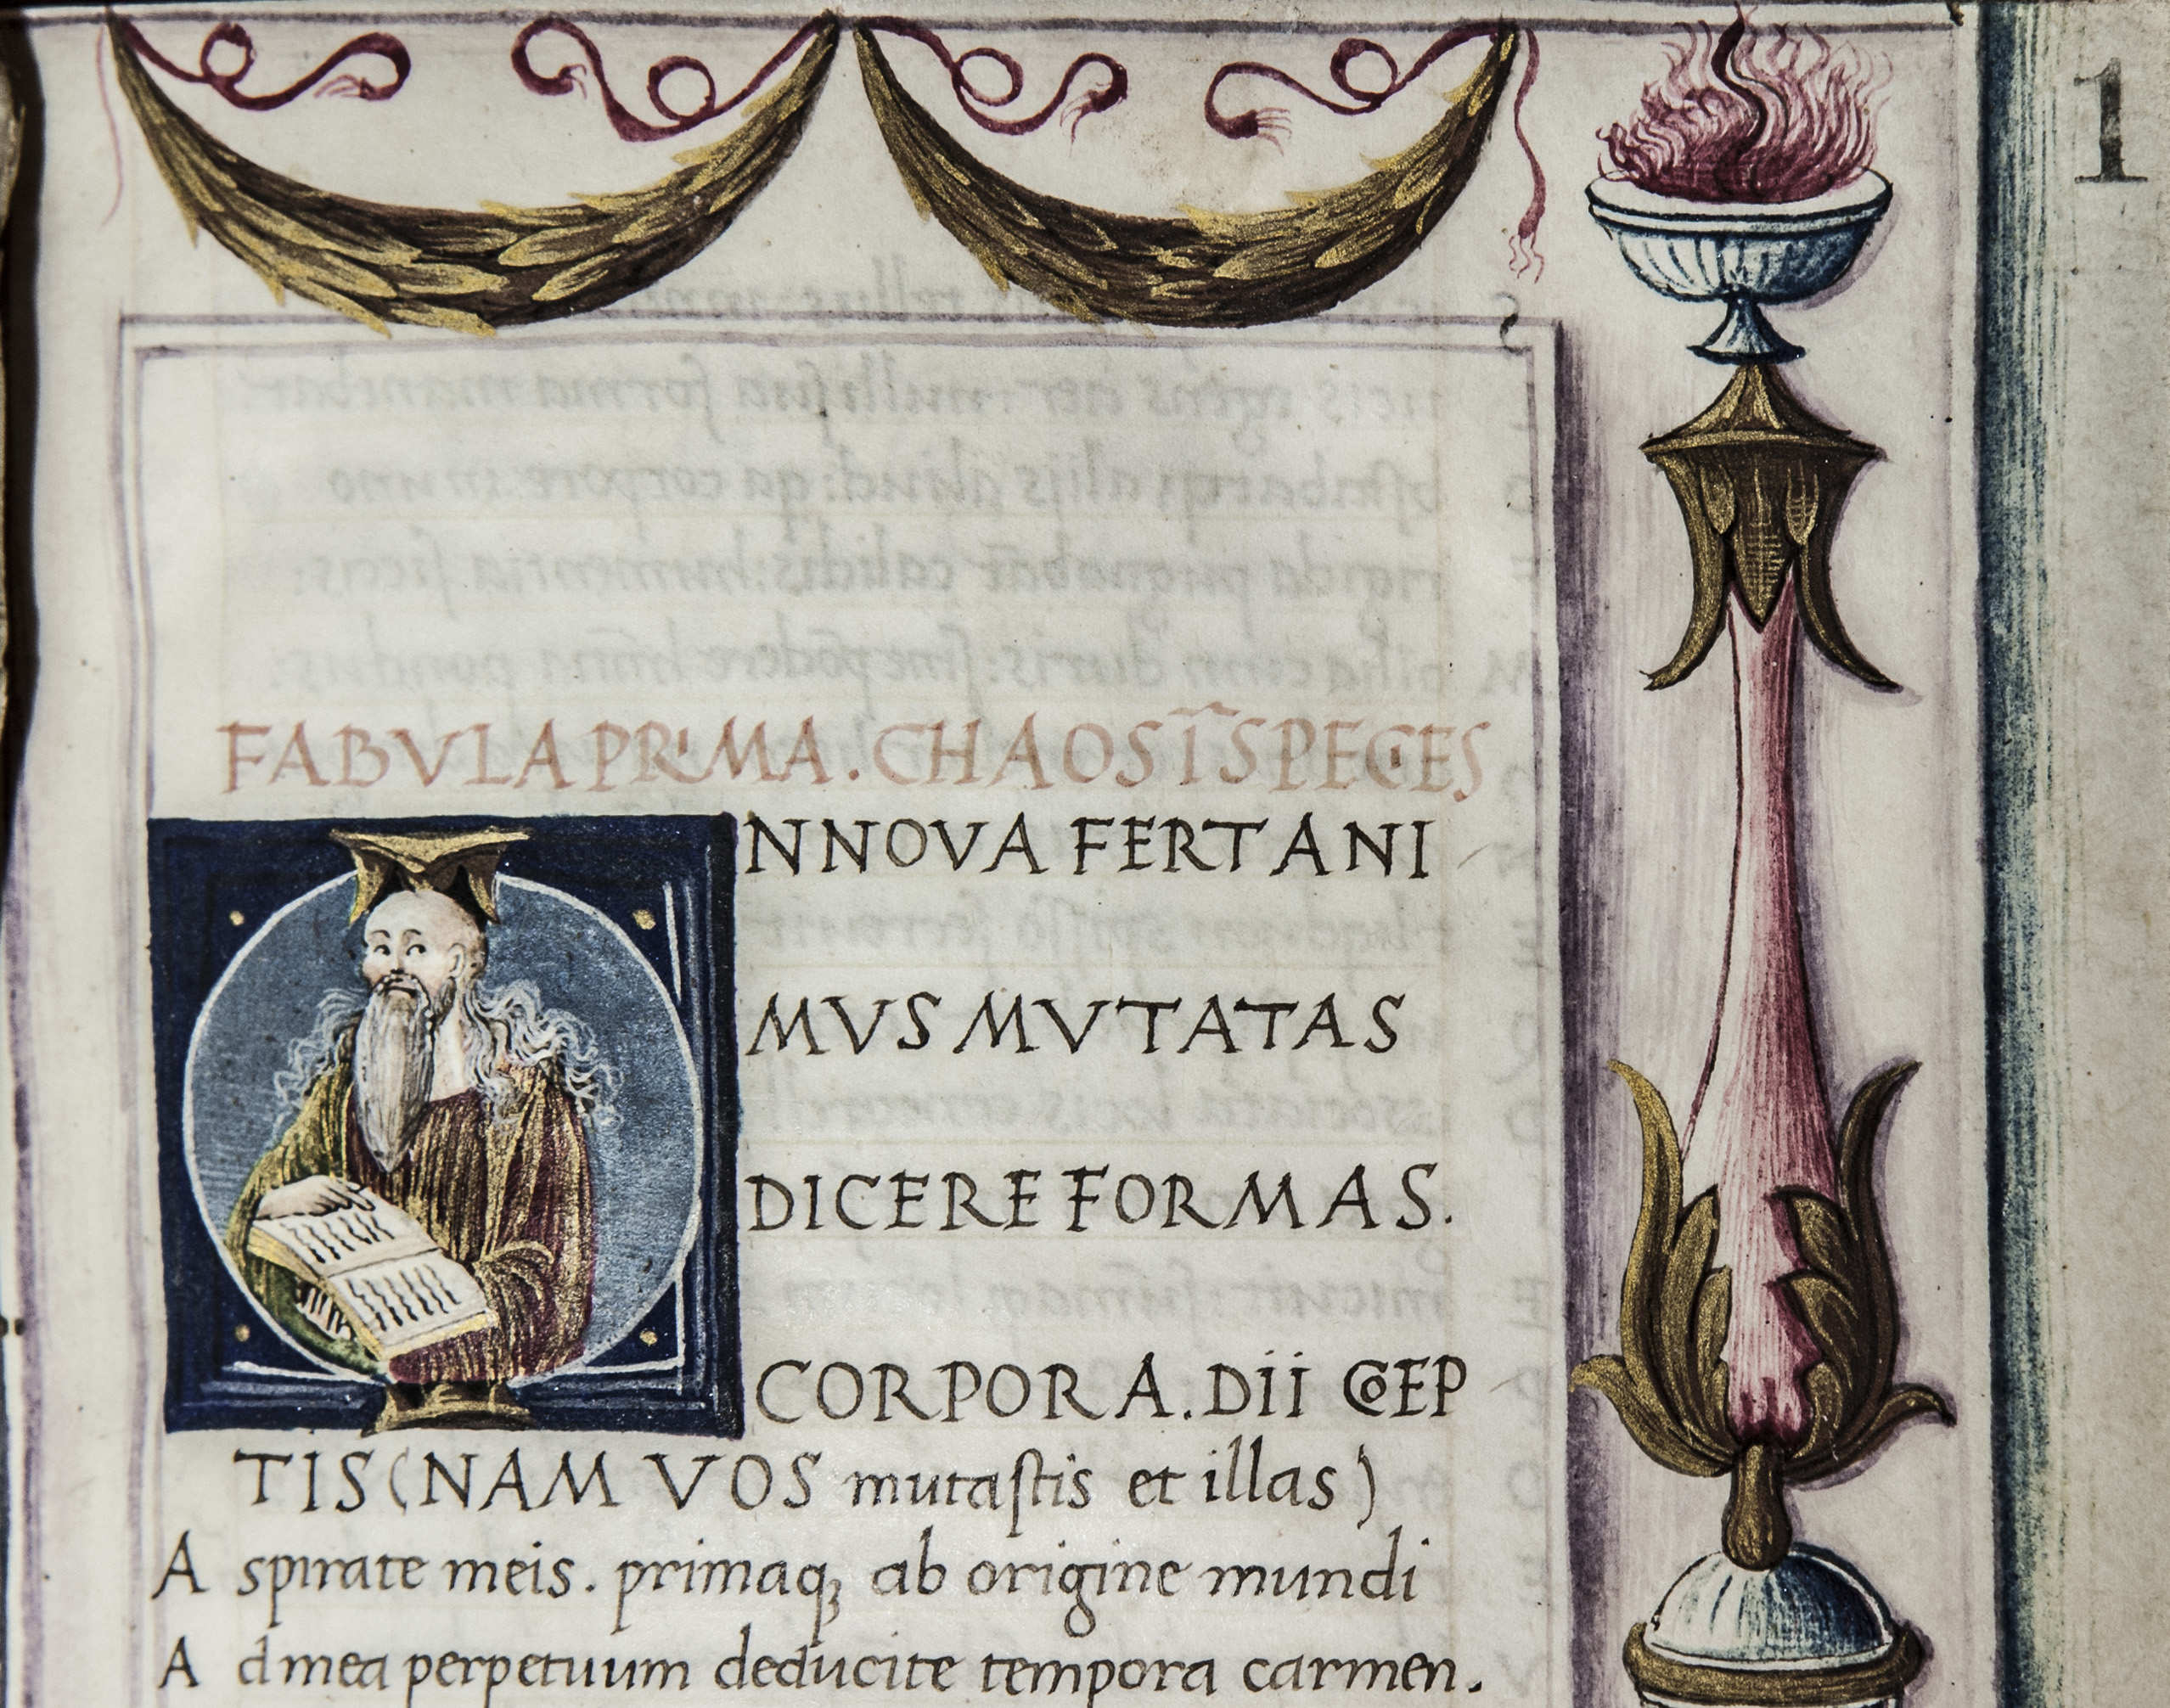 1
FABVLA PRIMA. CHAOS ĪSPECIES
NNOVA FERT ANI
MVS MVTATAS
DICERE FORMAS.
CORPORA. DII COEP
TIS (NAM VOS mutastis et illas)
A spirate meis. primaq; ab origine mundi
A d mea perpetuum deducite tempora carmen.